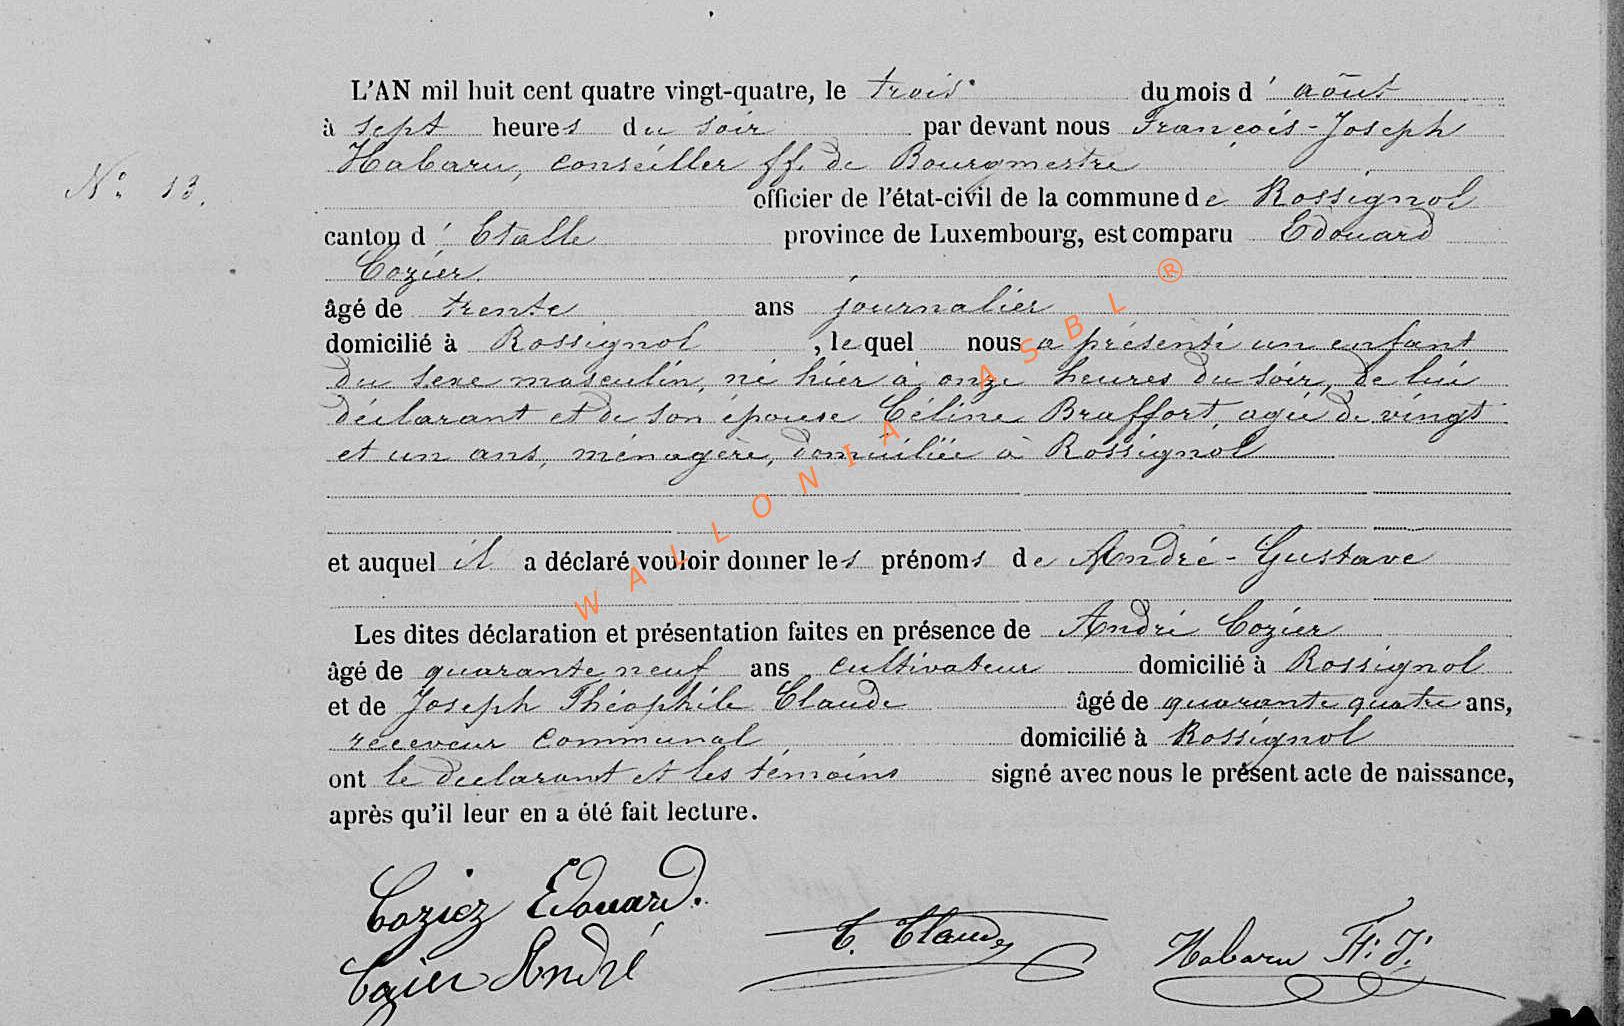 L'AN mil huit cent quatre vingt-quatre, le trois du mois d' août
à sept heures du soir par devant nous François-Joseph
Habaru, conseiller ff. de Bourgmestre
N° 13.
officier de l'état-civil de la commune de Rossignol
canton d' Etalle province de Luxembourg, est comparu Edouard
Cozier
âgé de trente ans journalier
domicilié à Rossignol, lequel nous a présenté un enfant
du sexe masculin, né hier à onze heures du soir, de lui
déclarant et de son épouse Céline Braffort, agée de vingt
et un ans, ménagère, domiciliée à Rossignol
et auquel il a déclaré vouloir donner les prénoms de André-Gustave
Les dites déclaration et présentation faites en présence de André Cozier
âgé de quarante neuf ans cultivateur domicilié à Rossignol
et de Joseph Théophile Claude âgé de quarante quatre ans,
receveur communal domicilié à Rossignol
ont le déclarant et les témoins signé avec nous le présent acte de naissance,
après qu'il leur en a été fait lecture.
Coziez Edouard.
André
T. Claude
Habaru F. J.
WALLONIA ASBL ®